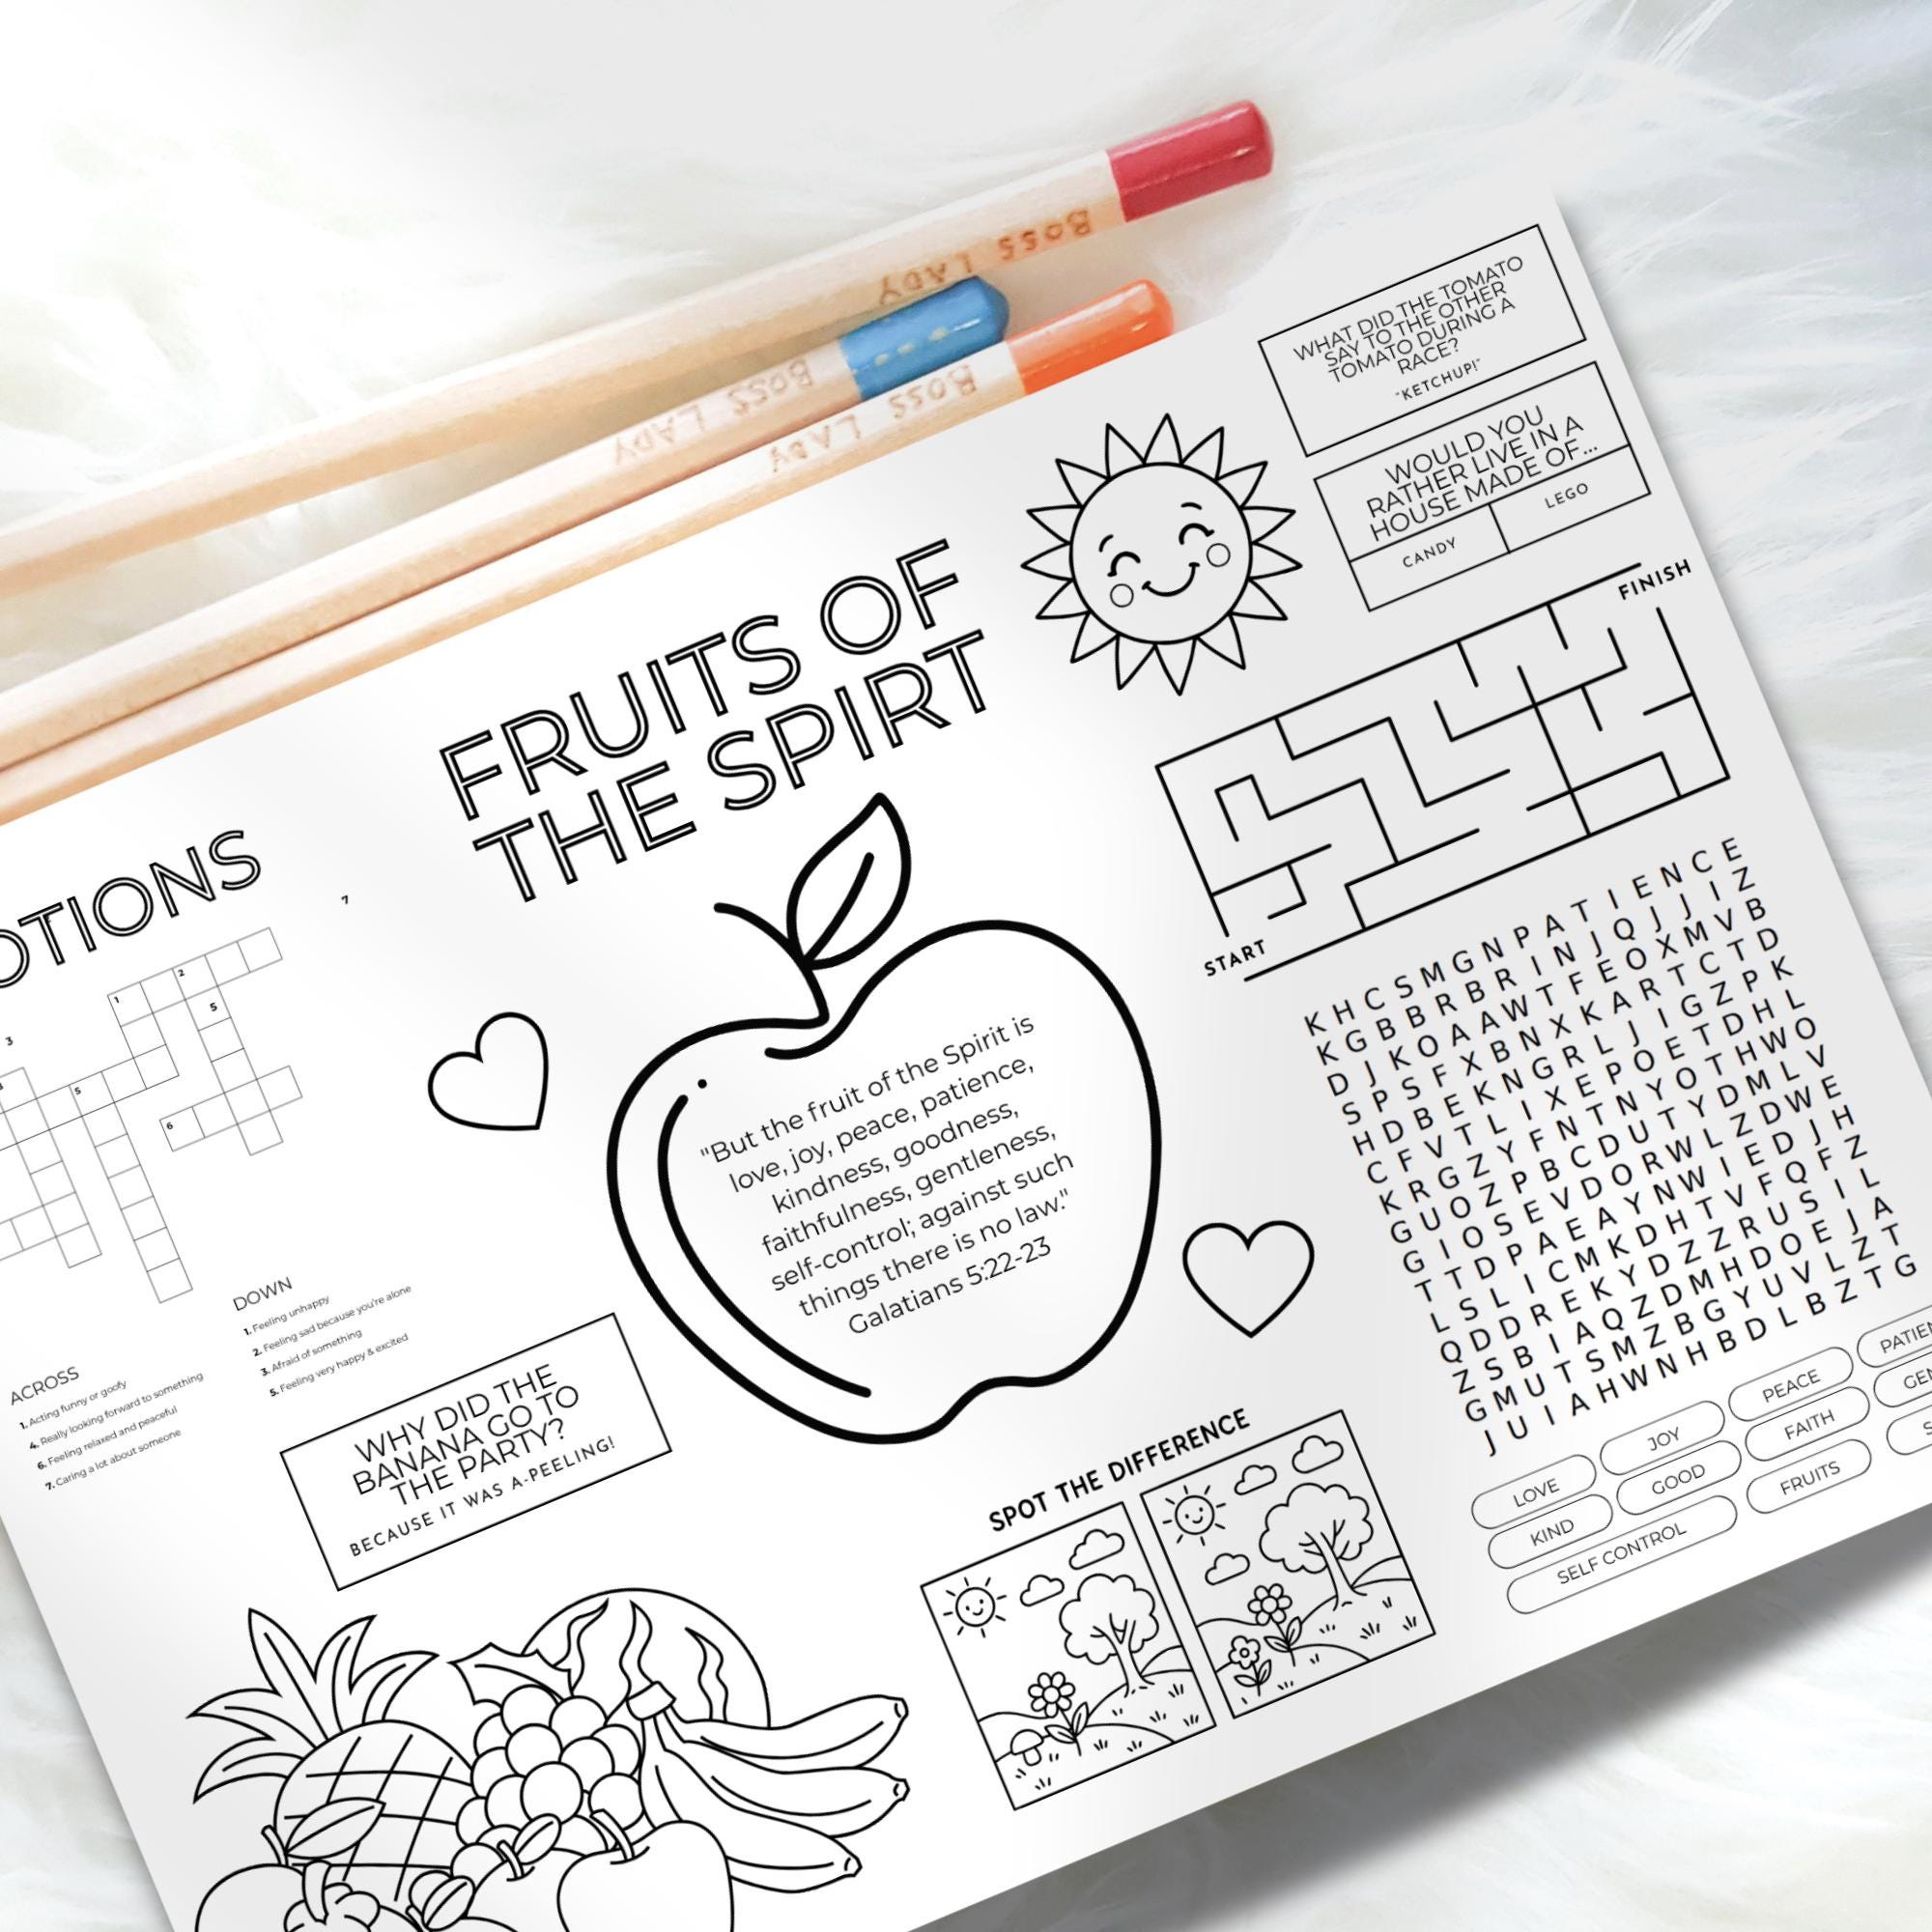 BOSS LADY
BOSS LADY
BOSS LADY
WHAT DID THE TOMATO
SAY TO THE OTHER
TOMATO DURING A
RACE?
"KETCHUP!"
WOULD YOU
RATHER LIVE IN A
HOUSE MADE OF...
CANDY
LEGO
FRUITS OF
THE SPIRT
FINISH
START
OTIONS
7
1
2
3
5
5
6
DOWN
1. Feeling unhappy
2. Feeling sad because you're alone
3. Afraid of something
5. Feeling very happy & excited
ACROSS
1. Acting funny or goofy
4. Really looking forward to something
6. Feeling relaxed and peaceful
7. Caring a lot about someone
"But the fruit of the Spirit is
love, joy, peace, patience,
kindness, goodness,
faithfulness, gentleness,
self-control; against such
things there is no law."
Galatians 5:22-23
WHY DID THE
BANANA GO TO
THE PARTY?
BECAUSE IT WAS A-PEELING!
SPOT THE DIFFERENCE
K H C S M G N P A T I E N C E
K G B B R B R I N J Q J J I Z
D J K O A A W T F E O X M V B
S P S F X B N X K A R T C T D
H D B E K N G R L J I G Z P K
C F V T L I X E P O E T D H L
K R G Z Y F N T N Y O T H W O
G U O Z P B C D U T Y D M L V
G I O S E V D O R W L Z D W E
T T D P A E A Y N W I E D J H
L S L I C M K D H T V F Q F Z
Q D D R E K Y D Z Z R U S I L
Z S B I A Q Z D M H D O E J A
G M U T S M Z B G Y U V L Z T
J U I A H W N H B D L B Z T G
LOVE
JOY
PEACE
PATIEN
KIND
GOOD
FAITH
GEN
SELF CONTROL
FRUITS
S